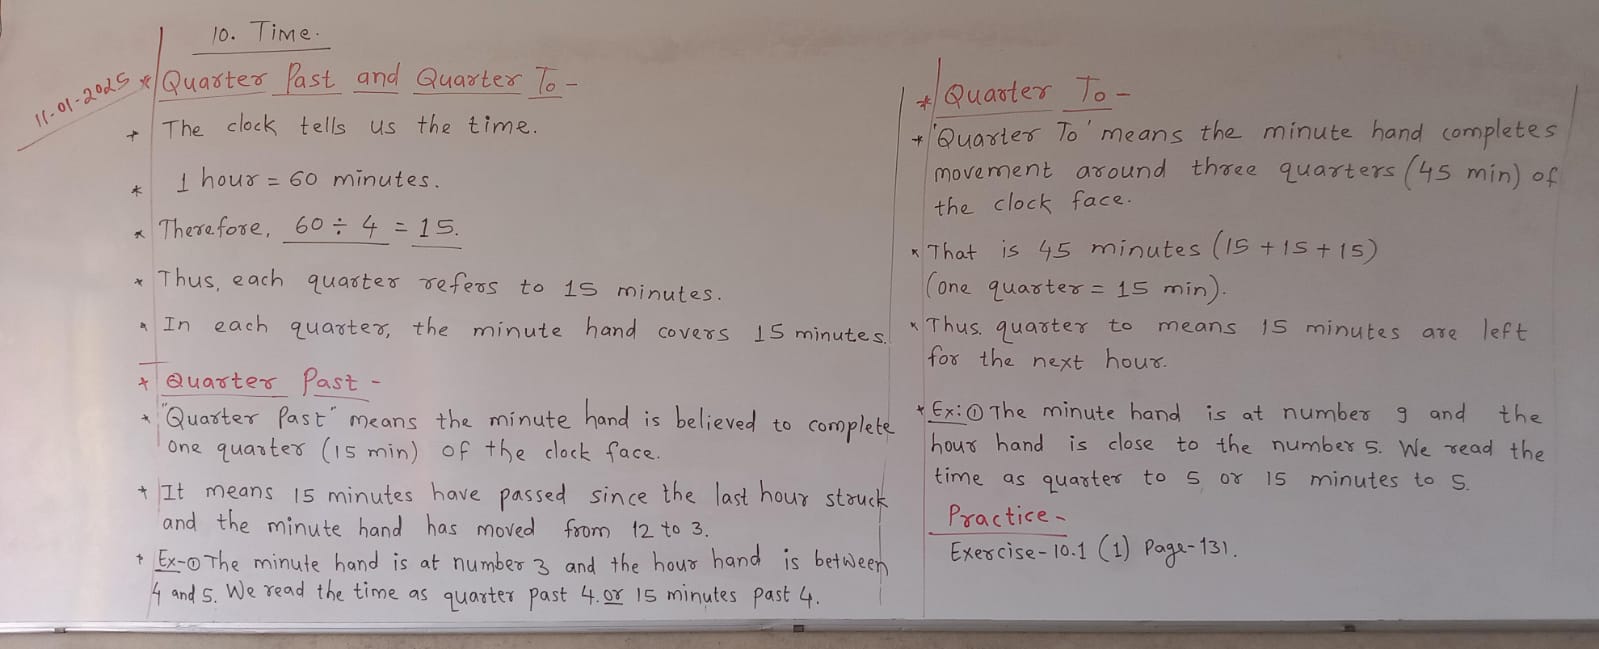 10. Time.
11-01-2025
* Quarter Past and Quarter To -
* The clock tells us the time.
* 1 hour = 60 minutes.
* Therefore, 60 ÷ 4 = 15.
* Thus, each quarter refers to 15 minutes.
* In each quarter, the minute hand covers 15 minutes.
* Quarter Past -
* "Quarter Past" means the minute hand is believed to complete
one quarter (15 min) of the clock face.
* It means 15 minutes have passed since the last hour struck
and the minute hand has moved from 12 to 3.
* Ex-① The minute hand is at number 3 and the hour hand is between
4 and 5. We read the time as quarter past 4. or 15 minutes past 4.
* Quarter To -
* 'Quarter To' means the minute hand completes
movement around three quarters (45 min) of
the clock face.
* That is 45 minutes (15 + 15 + 15)
(one quarter = 15 min).
* Thus, quarter to means 15 minutes are left
for the next hour.
* Ex:① The minute hand is at number 9 and the
hour hand is close to the number 5. We read the
time as quarter to 5 or 15 minutes to 5.
Practice -
Exercise - 10.1 (1) Page-131.